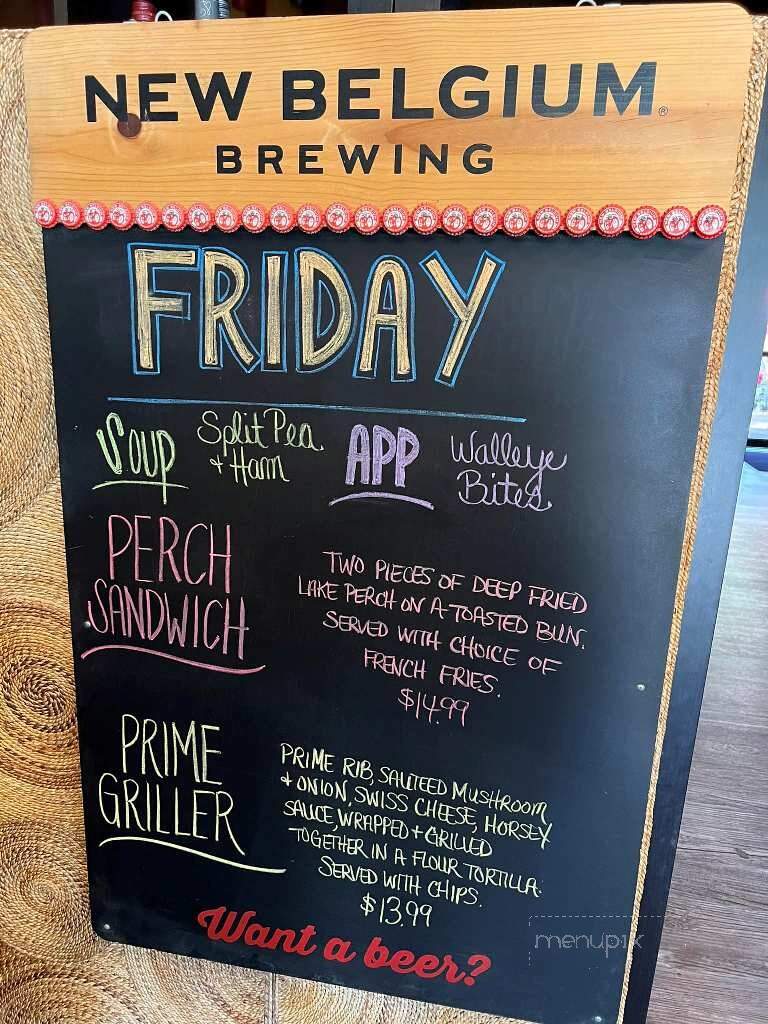 NEW BELGIUM®
BREWING
FRIDAY
SOUP
Split Pea
+ Ham
APP
Walleye
Bites
PERCH
SANDWICH
TWO PIECES OF DEEP FRIED
LAKE PERCH ON A TOASTED BUN.
SERVED WITH CHOICE OF
FRENCH FRIES.
$14.99
PRIME
GRILLER
PRIME RIB, SAUTEED MUSHROOM
+ ONION, SWISS CHEESE, HORSEY
SAUCE, WRAPPED + GRILLED
TOGETHER IN A FLOUR TORTILLA.
SERVED WITH CHIPS.
$13.99
Want a beer?
menupix